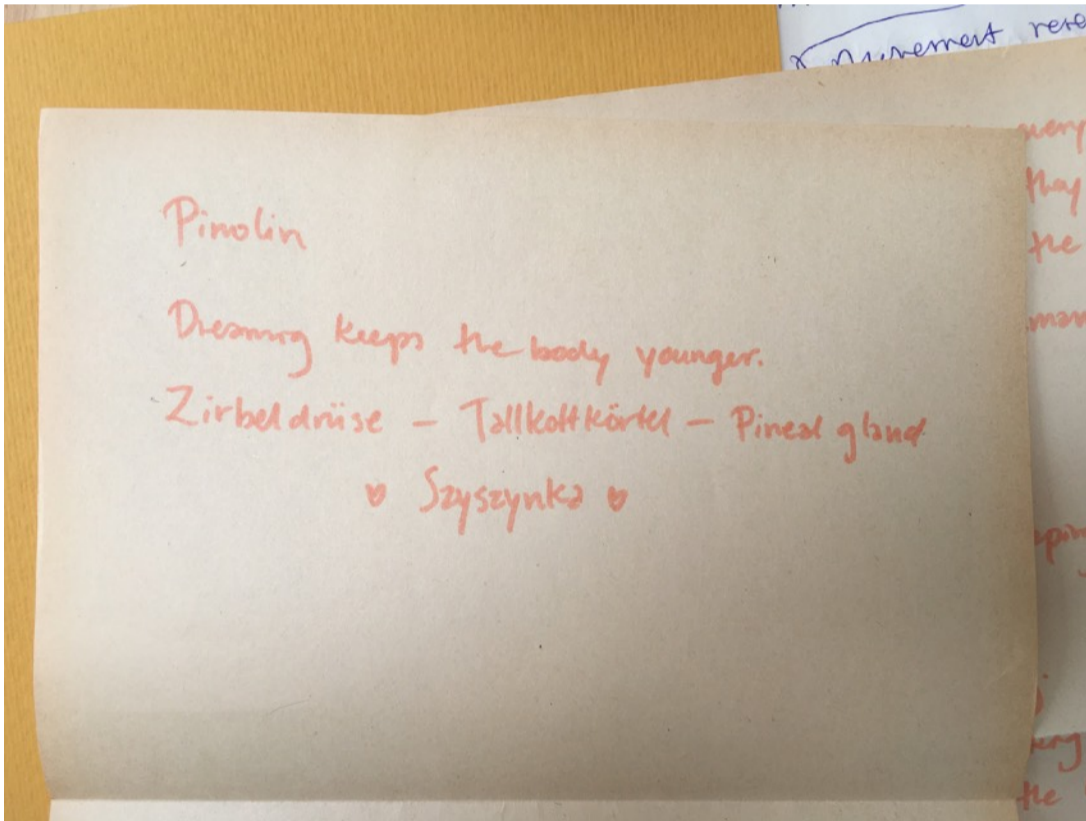 Movement
Pinolin
Dreaming keeps the body younger.
Zirbeldrüse – Tallkottkörtel – Pineal gland
♥ Szyszynka ♥
they
the
the